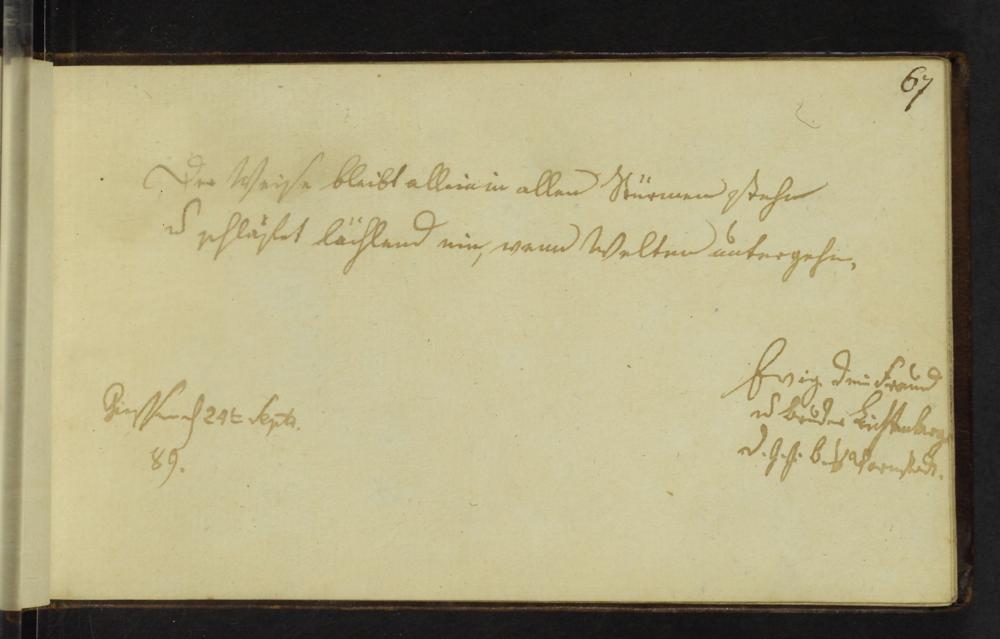 67
Der Weise bleibt allein in allen Stürmen stehn
u schläfet lächlend ein, wenn Welten untergehn.
Giessen d 24t Septr.
89.
Ewig Dein Freund
u Bruder Lichtenberg
d. G. G. B. aus Darmstadt.